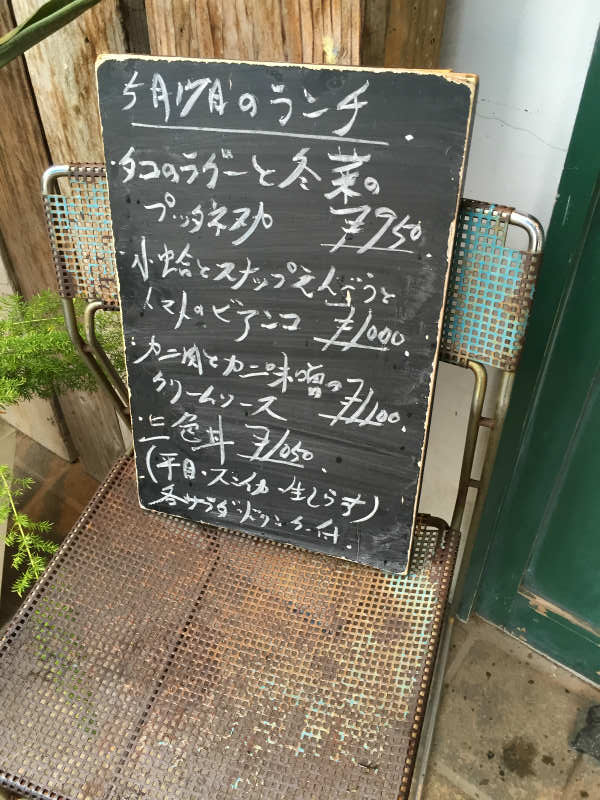 5月17日のランチ
・タコのラグーと冬菜の
プッタネスカ ¥950.
・小蛤とスナップえんどうと
トマトのビアンコ ¥1000.
・カニ肉とカニ味噌の
クリームソース ¥1100.
・三色丼 ¥1050.
(平目・スミイカ・生しらす)
各サラダ・ドリンク付.